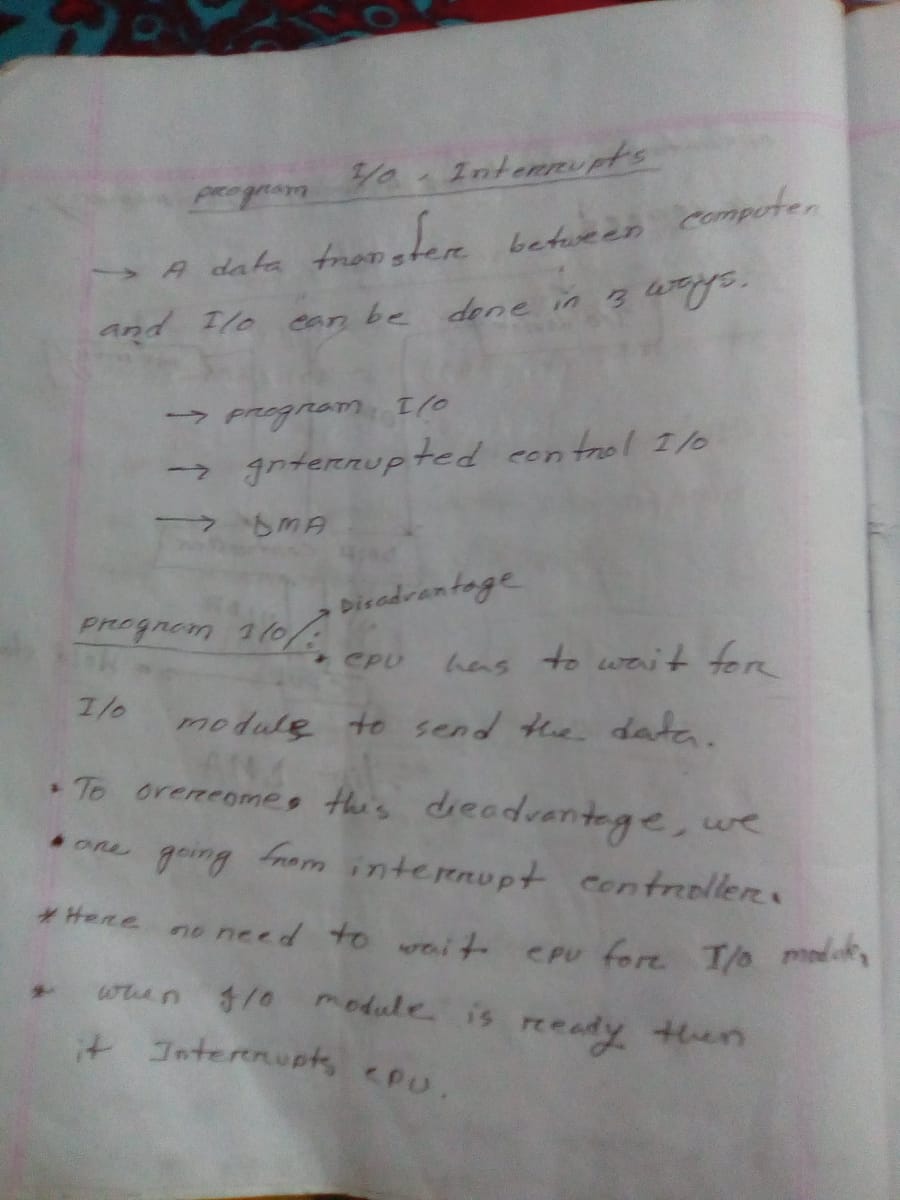 program I/O - Interrupts
→ A data transfer between computer
and I/O can be done in 3 ways.
→ program I/O
→ Interrupted control I/O
→ DMA
program I/O: → Disadvantage
* CPU has to wait for
I/O module to send the data.
• To overcomes this disadvantage, we
• are going from interrupt controller.
* Here no need to wait CPU for I/O module,
* when I/O module is ready then
it Interrupts CPU.